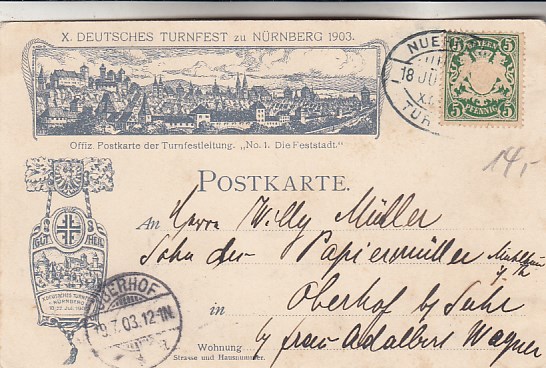 X. DEUTSCHES TURNFEST zu NÜRNBERG 1903.
Offiz. Postkarte der Turnfestleitung. „No. 1. Die Feststadt."
NUE
18 JU
TUR
BAYERN
5 5
5 5
PFENNIG
14,-
POSTKARTE.
An Herrn Willy Müller
Sohn des Papiermüller
in Oberhof by Suhl
by frau Adalbert Wagner
Wohnung
Strasse und Hausnummer.
GUT HEIL
X. DEUTSCHES TURNFEST
NÜRNBERG
OBERHOF
19.7.03.12-1N.